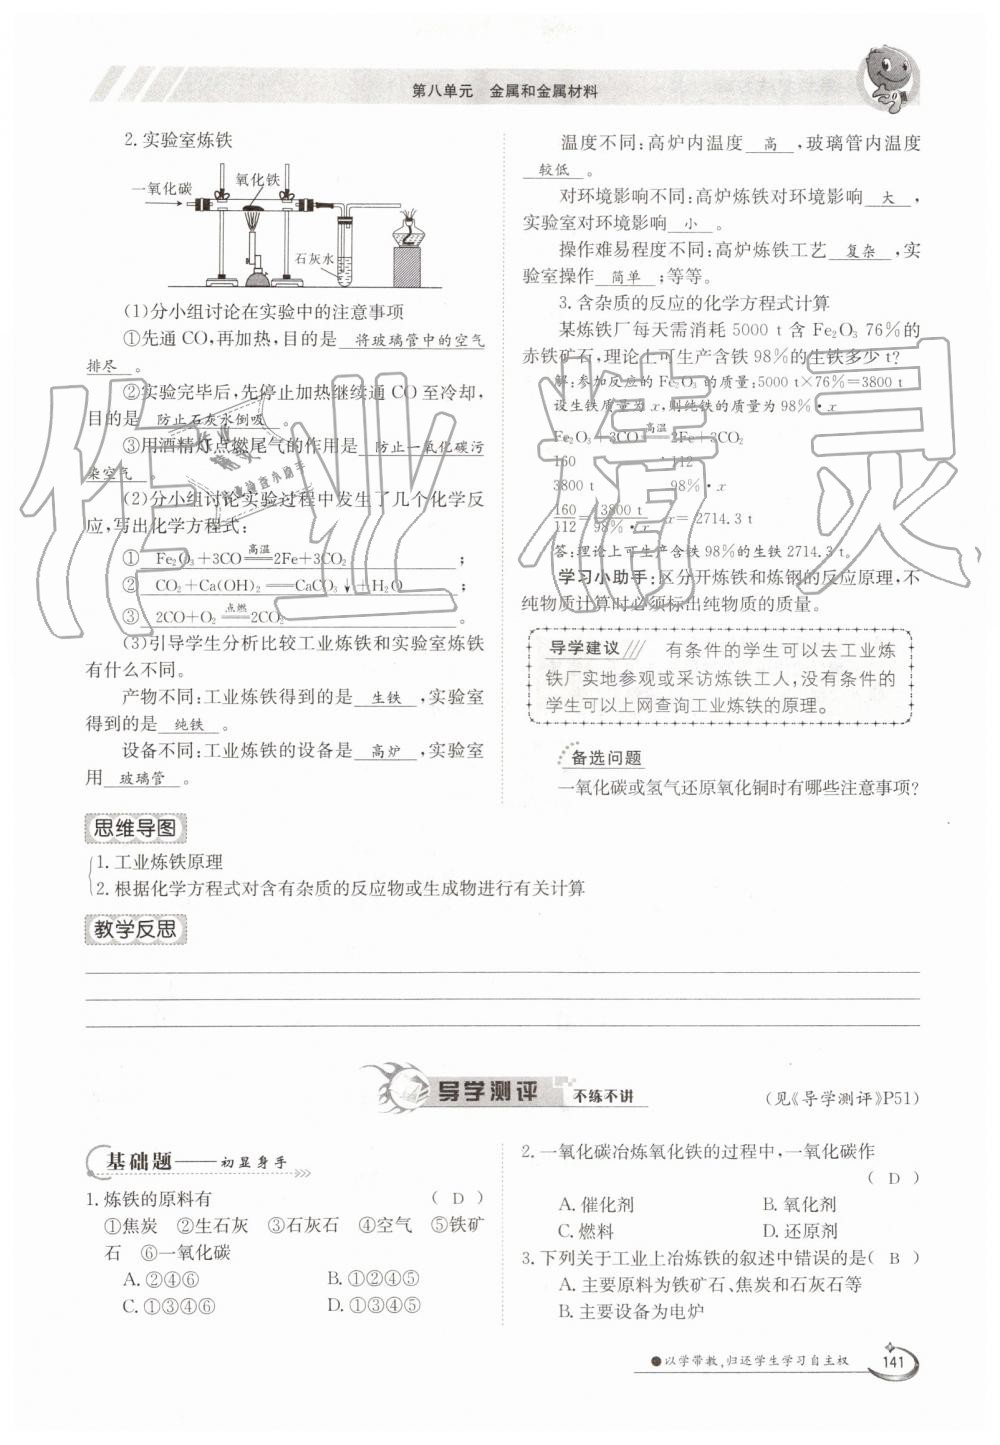 第八单元 金属和金属材料
2. 实验室炼铁
一氧化碳
氧化铁
石灰水
(1)分小组讨论在实验中的注意事项
①先通 CO,再加热,目的是 将玻璃管中的空气
排尽 。
②实验完毕后,先停止加热继续通 CO 至冷却,
目的是 防止石灰水倒吸 。
③用酒精灯点燃尾气的作用是 防止一氧化碳污
染空气 。
(2)分小组讨论实验过程中发生了几个化学反
应,写出化学方程式:
① Fe₂O₃+3CO══高温══2Fe+3CO₂ ;
② CO₂+Ca(OH)₂══CaCO₃↓+H₂O ;
③ 2CO+O₂══点燃══2CO₂ 。
(3)引导学生分析比较工业炼铁和实验室炼铁
有什么不同。
产物不同:工业炼铁得到的是 生铁 ,实验室
得到的是 纯铁 。
设备不同:工业炼铁的设备是 高炉 ,实验室
用 玻璃管 。
温度不同:高炉内温度 高 ,玻璃管内温度
较低 。
对环境影响不同:高炉炼铁对环境影响 大 ,
实验室对环境影响 小 。
操作难易程度不同:高炉炼铁工艺 复杂 ,实
验室操作 简单 ;等等。
3. 含杂质的反应的化学方程式计算
某炼铁厂每天需消耗 5000 t 含 Fe₂O₃ 76%的
赤铁矿石,理论上可生产含铁 98%的生铁多少 t?
解:参加反应的 Fe₂O₃ 的质量:5000 t×76%=3800 t
设生铁质量为 x,则纯铁的质量为 98%·x
Fe₂O₃+3CO══高温══2Fe+3CO₂
160 112
3800 t 98%·x
160/112=3800 t/98%·x x=2714.3 t
答:理论上可生产含铁 98%的生铁 2714.3 t。
学习小助手:区分开炼铁和炼钢的反应原理,不
纯物质计算时必须标出纯物质的质量。
导学建议 有条件的学生可以去工业炼
铁厂实地参观或采访炼铁工人,没有条件的
学生可以上网查询工业炼铁的原理。
备选问题
一氧化碳或氢气还原氧化铜时有哪些注意事项?
思维导图
1. 工业炼铁原理
2. 根据化学方程式对含有杂质的反应物或生成物进行有关计算
教学反思
导学测评 不练不讲
(见《导学测评》P51)
基础题——初显身手
1. 炼铁的原料有 ( D )
①焦炭 ②生石灰 ③石灰石 ④空气 ⑤铁矿
石 ⑥一氧化碳
A. ②④⑥ B. ①②④⑤
C. ①③④⑥ D. ①③④⑤
2. 一氧化碳冶炼氧化铁的过程中,一氧化碳作
( D )
A. 催化剂 B. 氧化剂
C. 燃料 D. 还原剂
3. 下列关于工业上冶炼铁的叙述中错误的是( B )
A. 主要原料为铁矿石、焦炭和石灰石等
B. 主要设备为电炉
●以学带教,归还学生学习自主权
141
作业精灵